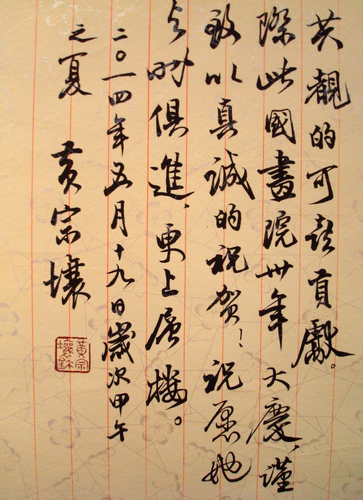 共覩的可喜貢獻。
際此國畫院卅年大慶,謹
致以真誠的祝賀!祝愿她
与時俱進,更上層樓。
二〇一四年五月十九日歲次甲午
之夏 黄宗壤
黄宗壤鉨